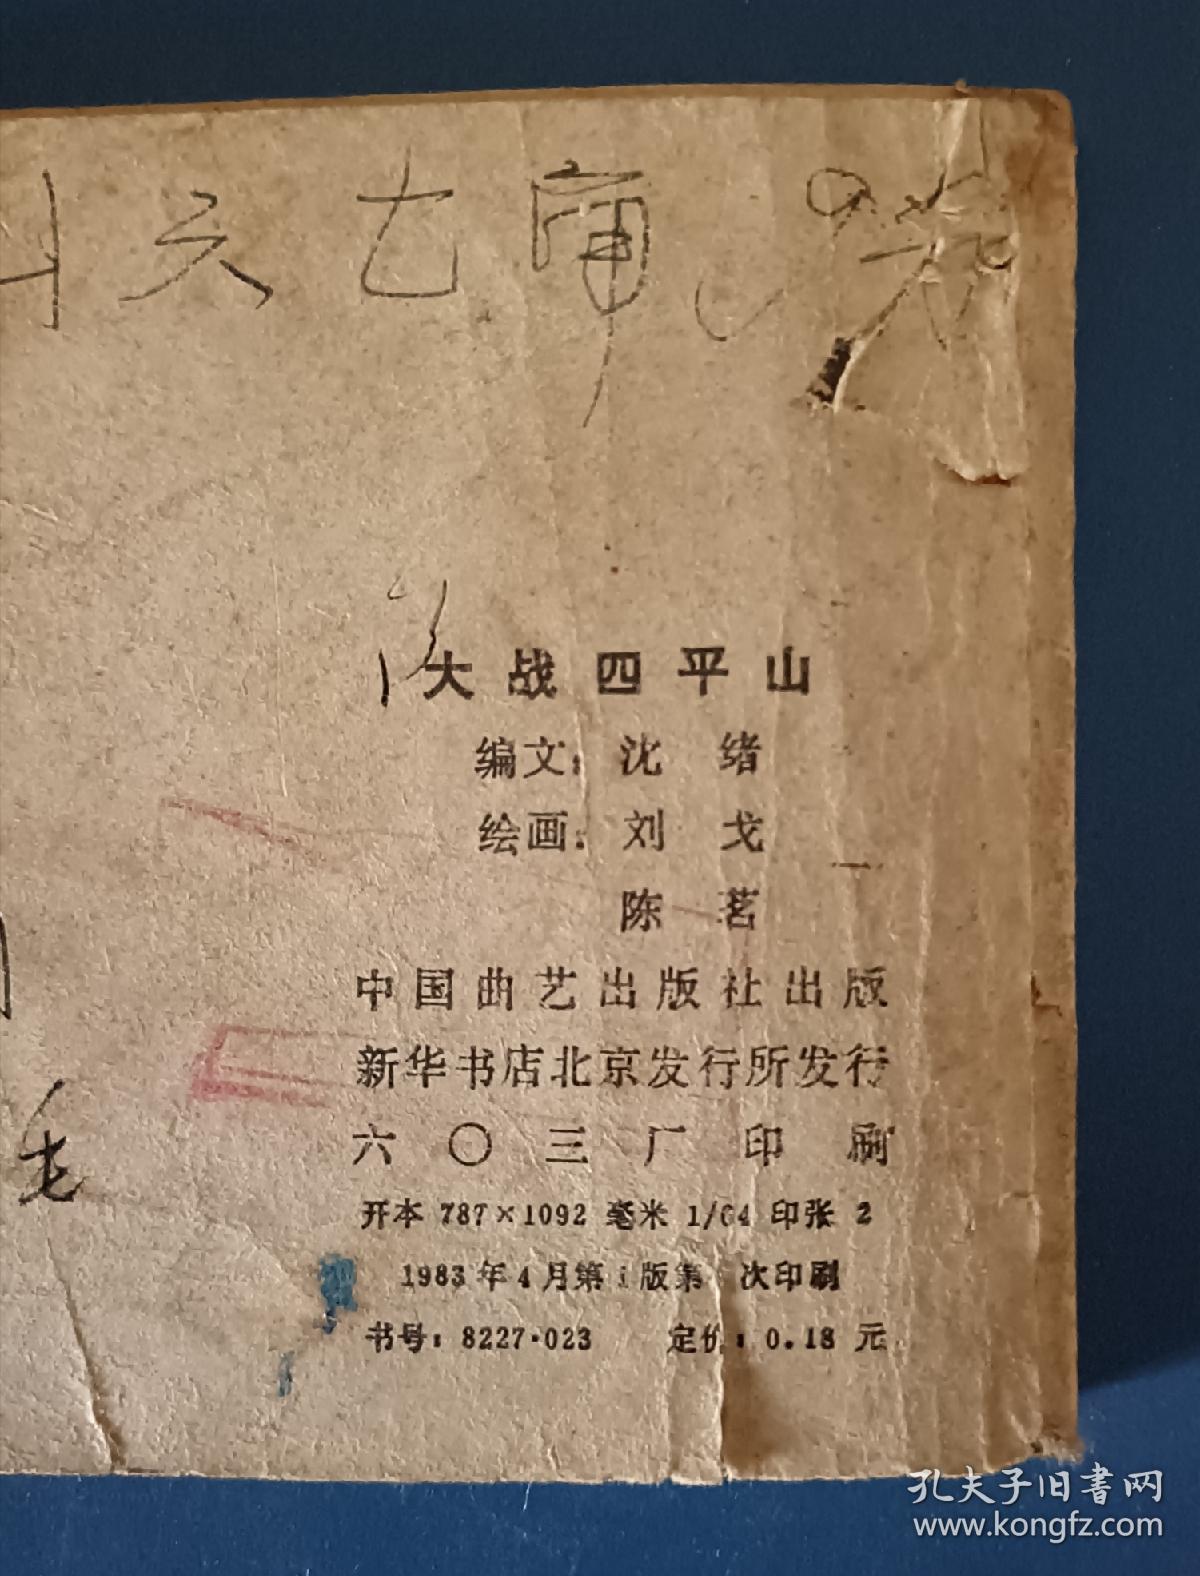 大战四平山
编文：沈 绪
绘画：刘 戈
陈 茗
中国曲艺出版社出版
新华书店北京发行所发行
六〇三厂印刷
开本 787×1092 毫米 1/64 印张 2
1983年4月第1版第 次印刷
书号：8227·023 定价：0.18 元
毛
孔夫子旧书网
www.kongfz.com